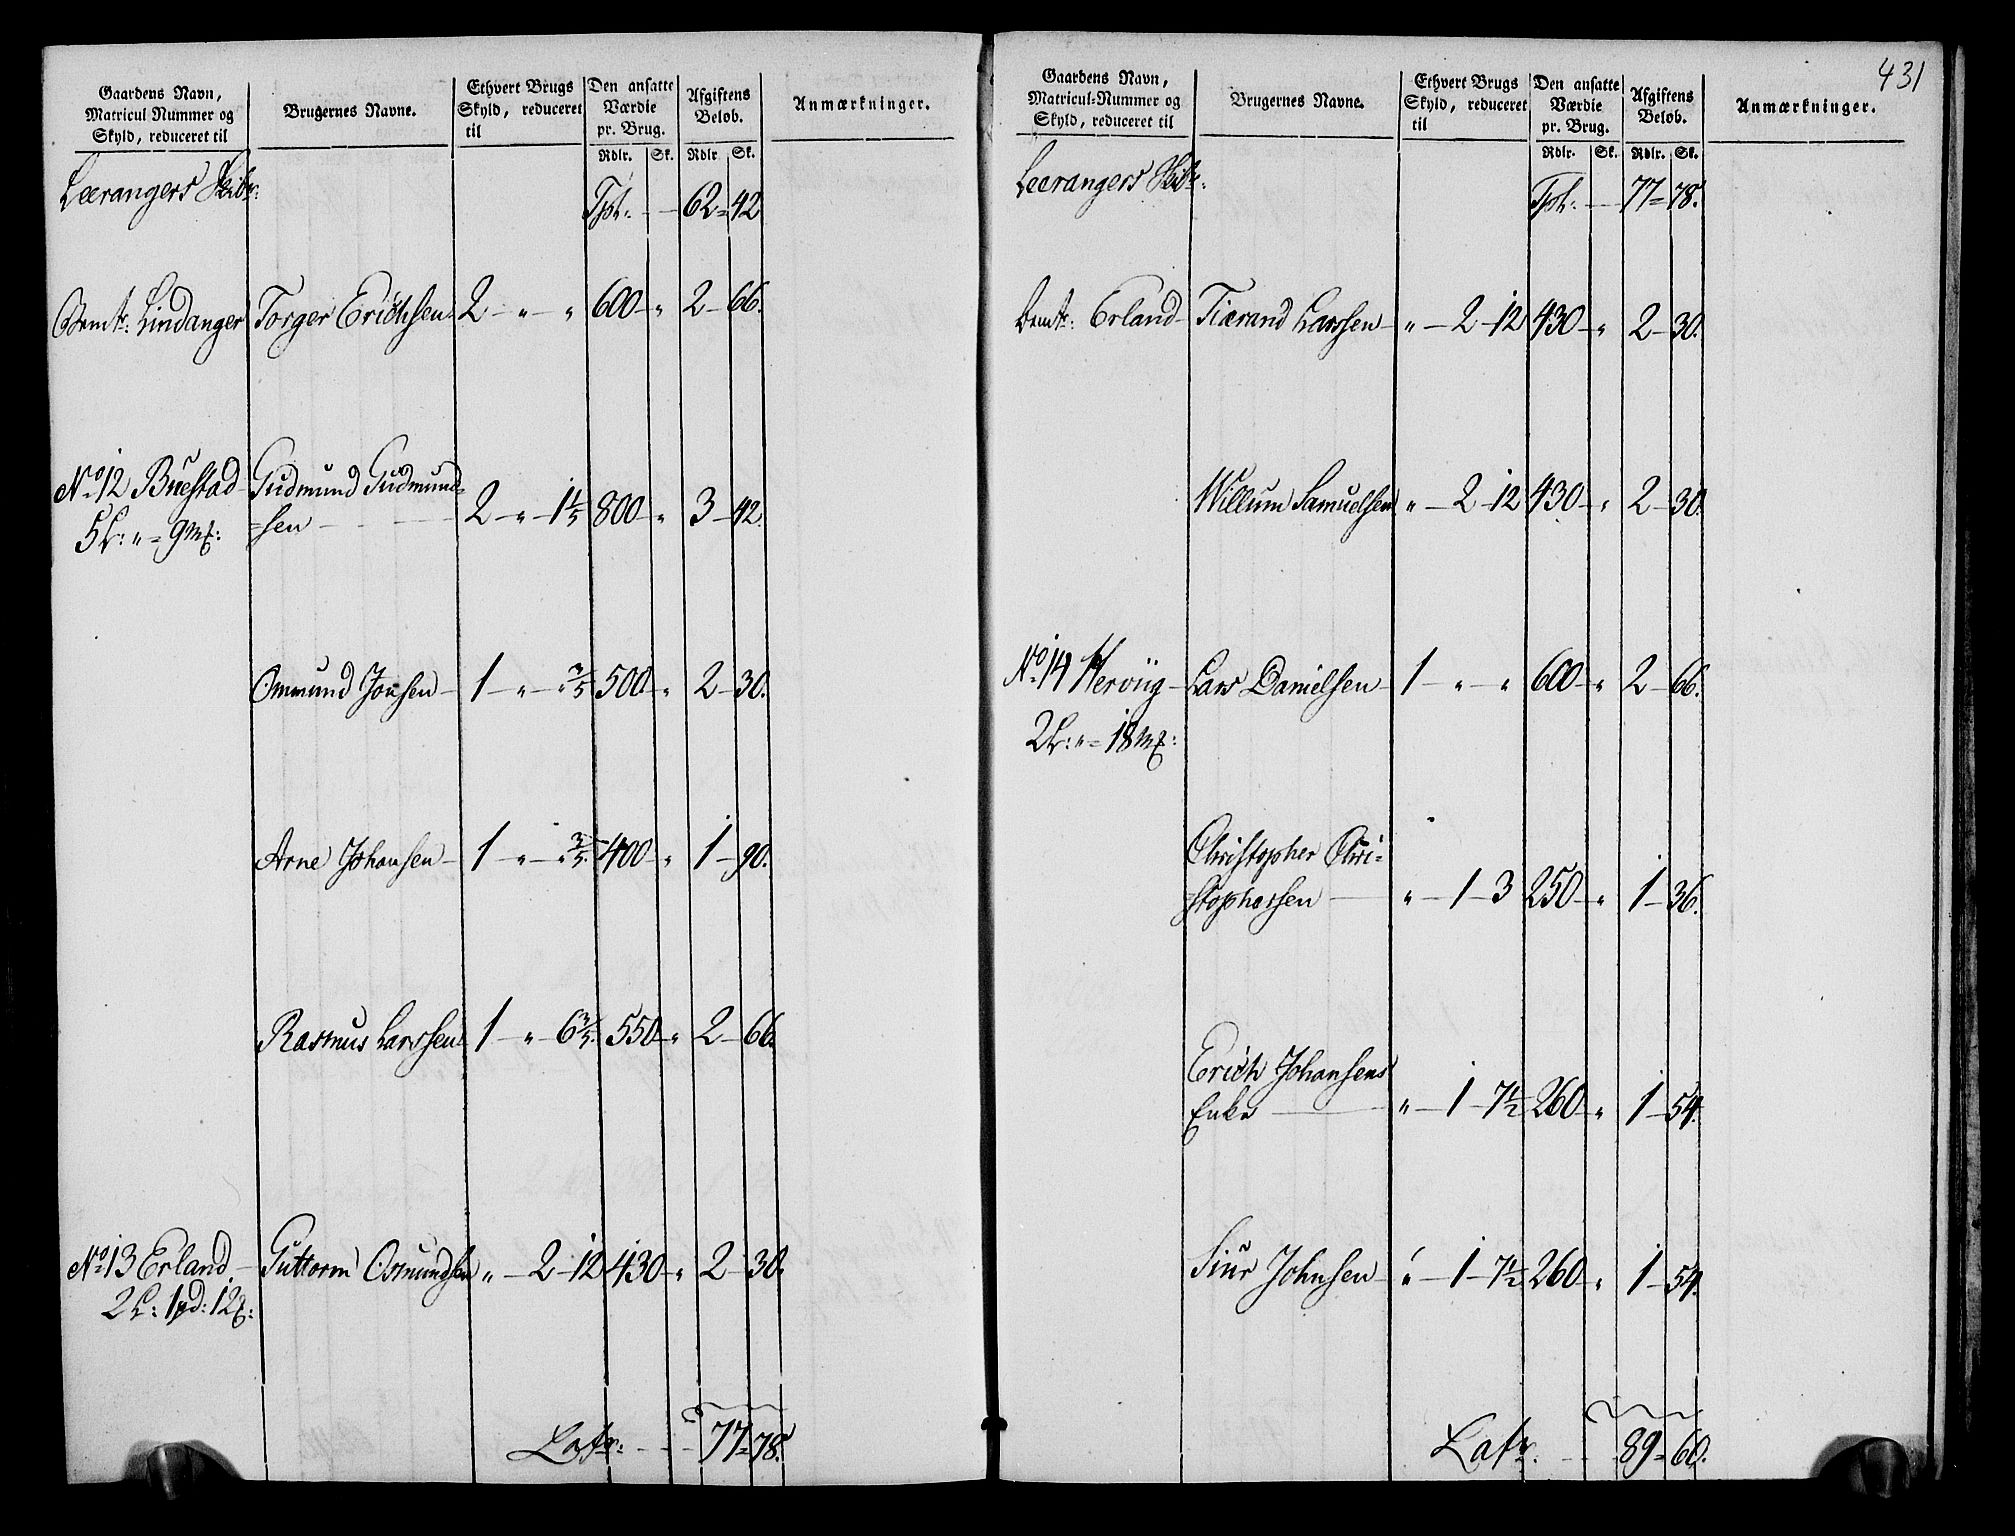 Gaardens Navn,
Matricul Nummer og
Skyld, reduceret til
Brugernes Navne.
Ethvert Brugs
Skyld, reduceret
til
Den ansatte
Værdie
pr. Brug.
Afgiftens
Beløb.
Anmærkninger.
Rdlr. Sk. Rdlr Sk.
Leerangers Skibr:
Tpt: — 62 = 42
Bemte: Lindanger Torger Erichsen 2 - " - " 600 - " 2 - 66.
No 12 Buestad Gudmund Gudmund=
=sen 2 - " - 1 1/5 800 - " 3 - 42.
5 L: " = 9 m[: 
Ommund Jonsen - 1 - " - " 3/5 500 - " 2 - 30.
Arne Johansen - 1 - " - " 3/5 400 - " 1 - 90.
Rasmus Larssen 1 - " - 6 3/5 550 - " 2 - 66.
No 13 Erland - Guttorm Osmundsen " - 2 - 12 430 - " 2 - 30.
2 L: 1 pd: 12
Latr: - - - 77 = 78.
431
Gaardens Navn,
Matricul-Nummer og
Skyld, reduceret til
Brugernes Navne.
Ethvert Brugs
Skyld, reduceret
til
Den ansatte
Værdie
pr. Brug.
Afgiftens
Beløb.
Anmærkninger.
Rdlr. Sk. Rdlr. Sk.
Leerangers Skibr:
Tpt: — 77 = 78.
Bemte: Erland - Tiærand Larssen - " - 2 - 12 430 - " 2 - 30.
Willum Samuelsen " - 2 - 12 430 - " 2 - 30.
No 14 Herviig - Lars Danielsen - 1 - " - " 600 - " 2 - 66.
2 L: " = 18
Christopher Chri=
=stophersen — " - 1 - 3 250 - " 1 - 36.
Erich Johansens
Enke — " - 1 - 7 1/2 260 - " 1 - 54.
Siur Johnsen - " - 1 - 7 1/2 260 - " 1 - 54.
Latr. - - 89 = 60.